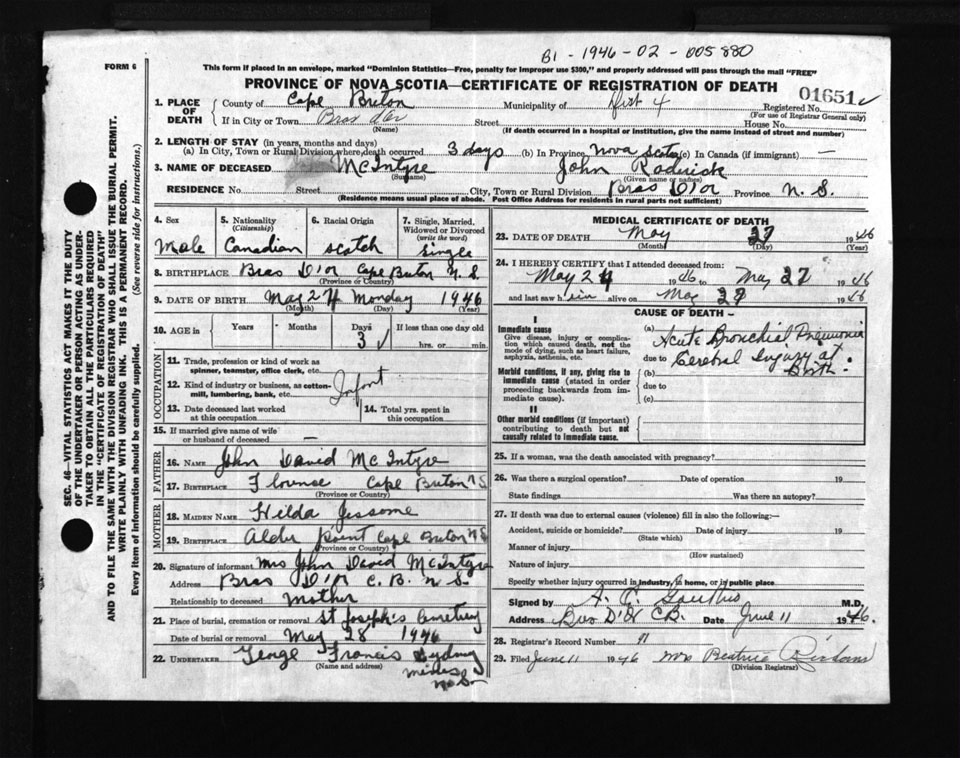 B1 - 1946 - 02 - 005880
FORM 6
This form if placed in an envelope, marked "Dominion Statistics—Free, penalty for improper use $300," and properly addressed will pass through the mail "FREE"
PROVINCE OF NOVA SCOTIA—CERTIFICATE OF REGISTRATION OF DEATH
01651
1. PLACE OF DEATH County of Cape Breton Municipality of Dist 4 Registered No.
(For use of Registrar General only)
If in City or Town Bras d'or Street House No.
(Name) (If death occurred in a hospital or institution, give the name instead of street and number)
2. LENGTH OF STAY (in years, months and days)
(a) In City, Town or Rural Division where death occurred 3 days (b) In Province Nova Scotia (c) In Canada (if immigrant) —
3. NAME OF DECEASED McIntyre John Roderick
(Surname) (Given name or names)
RESIDENCE No. Street City, Town or Rural Division Bras D'or Province N. S.
(Residence means usual place of abode. Post Office Address for residents in rural parts not sufficient)
4. Sex Male
5. Nationality (Citizenship) Canadian
6. Racial Origin Scotch
7. Single, Married, Widowed or Divorced (write the word) Single
8. BIRTHPLACE Bras D'or Cape Breton N. S
(Province or Country)
9. DATE OF BIRTH May 24 Monday 1946
(Month) (Day) (Year)
10. AGE in Years Months Days 3 If less than one day old hrs. or min.
OCCUPATION
11. Trade, profession or kind of work as spinner, teamster, office clerk, etc.
12. Kind of industry or business, as cotton-mill, lumbering, bank, etc. Infant
13. Date deceased last worked at this occupation
14. Total yrs. spent in this occupation
15. If married give name of wife or husband of deceased —
FATHER
16. NAME John David McIntyre
17. BIRTHPLACE Florence Cape Breton N S
(Province or Country)
MOTHER
18. MAIDEN NAME Hilda Jessome
19. BIRTHPLACE Alder point Cape Breton N S
(Province or Country)
20. Signature of informant Mrs John David McIntyre
Address Bras D'or C. B. N. S.
Relationship to deceased Mother
21. Place of burial, cremation or removal St Joseph's Cemetery
Date of burial or removal May 28 1946
22. UNDERTAKER George Francis Sydney
(Name and address)
Mines
N. S.
MEDICAL CERTIFICATE OF DEATH
23. DATE OF DEATH May 27 1946
(Month) (Day) (Year)
24. I HEREBY CERTIFY that I attended deceased from:
May 24 1946 to May 27 1946
and last saw him alive on May 27 1946
CAUSE OF DEATH—
I
Immediate cause
Give disease, injury or complication which caused death, not the mode of dying, such as heart failure, asphyxia, asthenia, etc.
(a) Acute Bronchial Pneumonia
due to Cerebral Injury at Birth.
Morbid conditions, if any, giving rise to immediate cause (stated in order proceeding backwards from immediate cause).
(b)
due to
(c)
II
Other morbid conditions (if important) contributing to death but not causally related to immediate cause.
25. If a woman, was the death associated with pregnancy?
26. Was there a surgical operation? Date of operation 19
State findings Was there an autopsy?
27. If death was due to external causes (violence) fill in also the following:—
Accident, suicide or homicide? Date of injury 19
(State which)
Manner of injury
(How sustained)
Nature of injury
Specify whether injury occurred in industry, in home, or in public place
Signed by A. C. M.D.
Address Bras D'Or CB. Date June 11 1946.
28. Registrar's Record Number 91
29. Filed June 11 1946 Mrs Beatrice
(Division Registrar)
SEC. 46—VITAL STATISTICS ACT MAKES IT THE DUTY
OF THE UNDERTAKER OR PERSON ACTING AS UNDER-
TAKER TO OBTAIN ALL THE PARTICULARS REQUIRED
IN THE "CERTIFICATE OF REGISTRATION OF DEATH"
AND TO FILE THE SAME WITH THE DIVISION REGISTRAR WHO SHALL ISSUE THE BURIAL PERMIT.
WRITE PLAINLY WITH UNFADING INK. THIS IS A PERMANENT RECORD.
Every item of information should be carefully supplied. (See reverse side for instructions.)